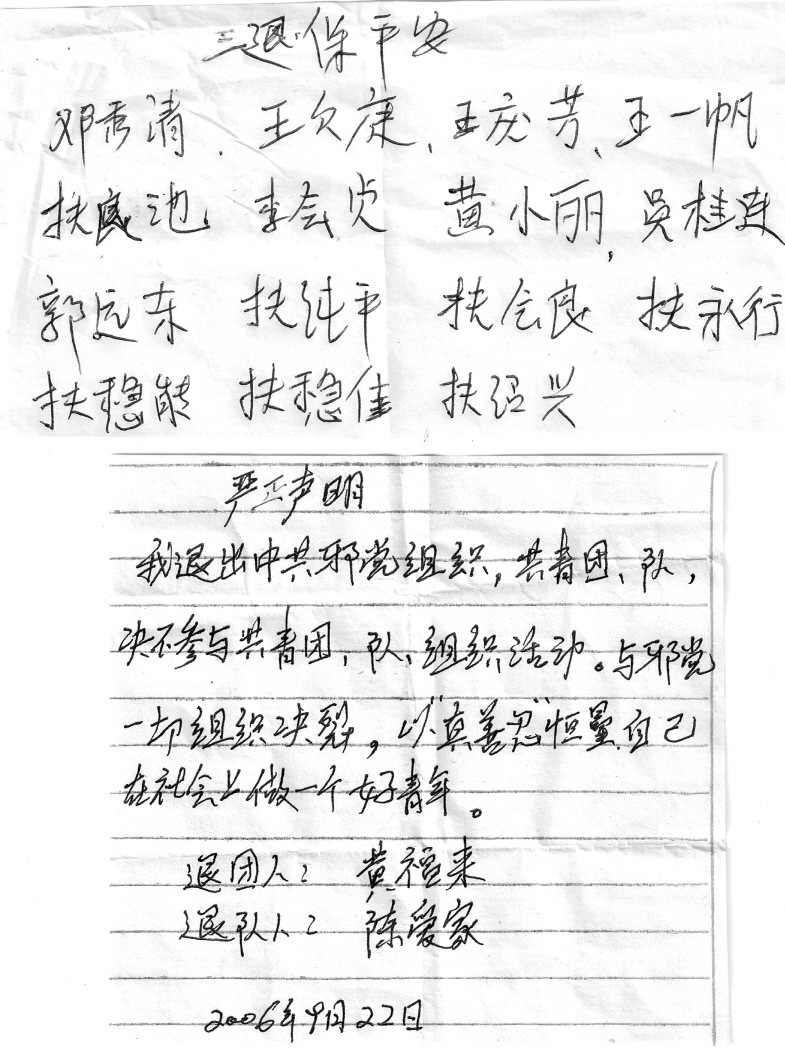 三退保平安
邓秀清、王欠康、王庆芳、王一帆
扶良池 李会贞 黄小丽,吴桂连
郭远东 扶纯平 扶会良 扶永行
扶稳能 扶稳佳 扶绍兴
严正声明
我退出中共邪党组织,共青团、队,
决不参与共青团、队、组织活动。与邪党
一切组织决裂,以“真善忍”恒量自己
在社会上做一个好青年。
退团人: 黄福来
退队人: 陈爱家
2006年9月22日